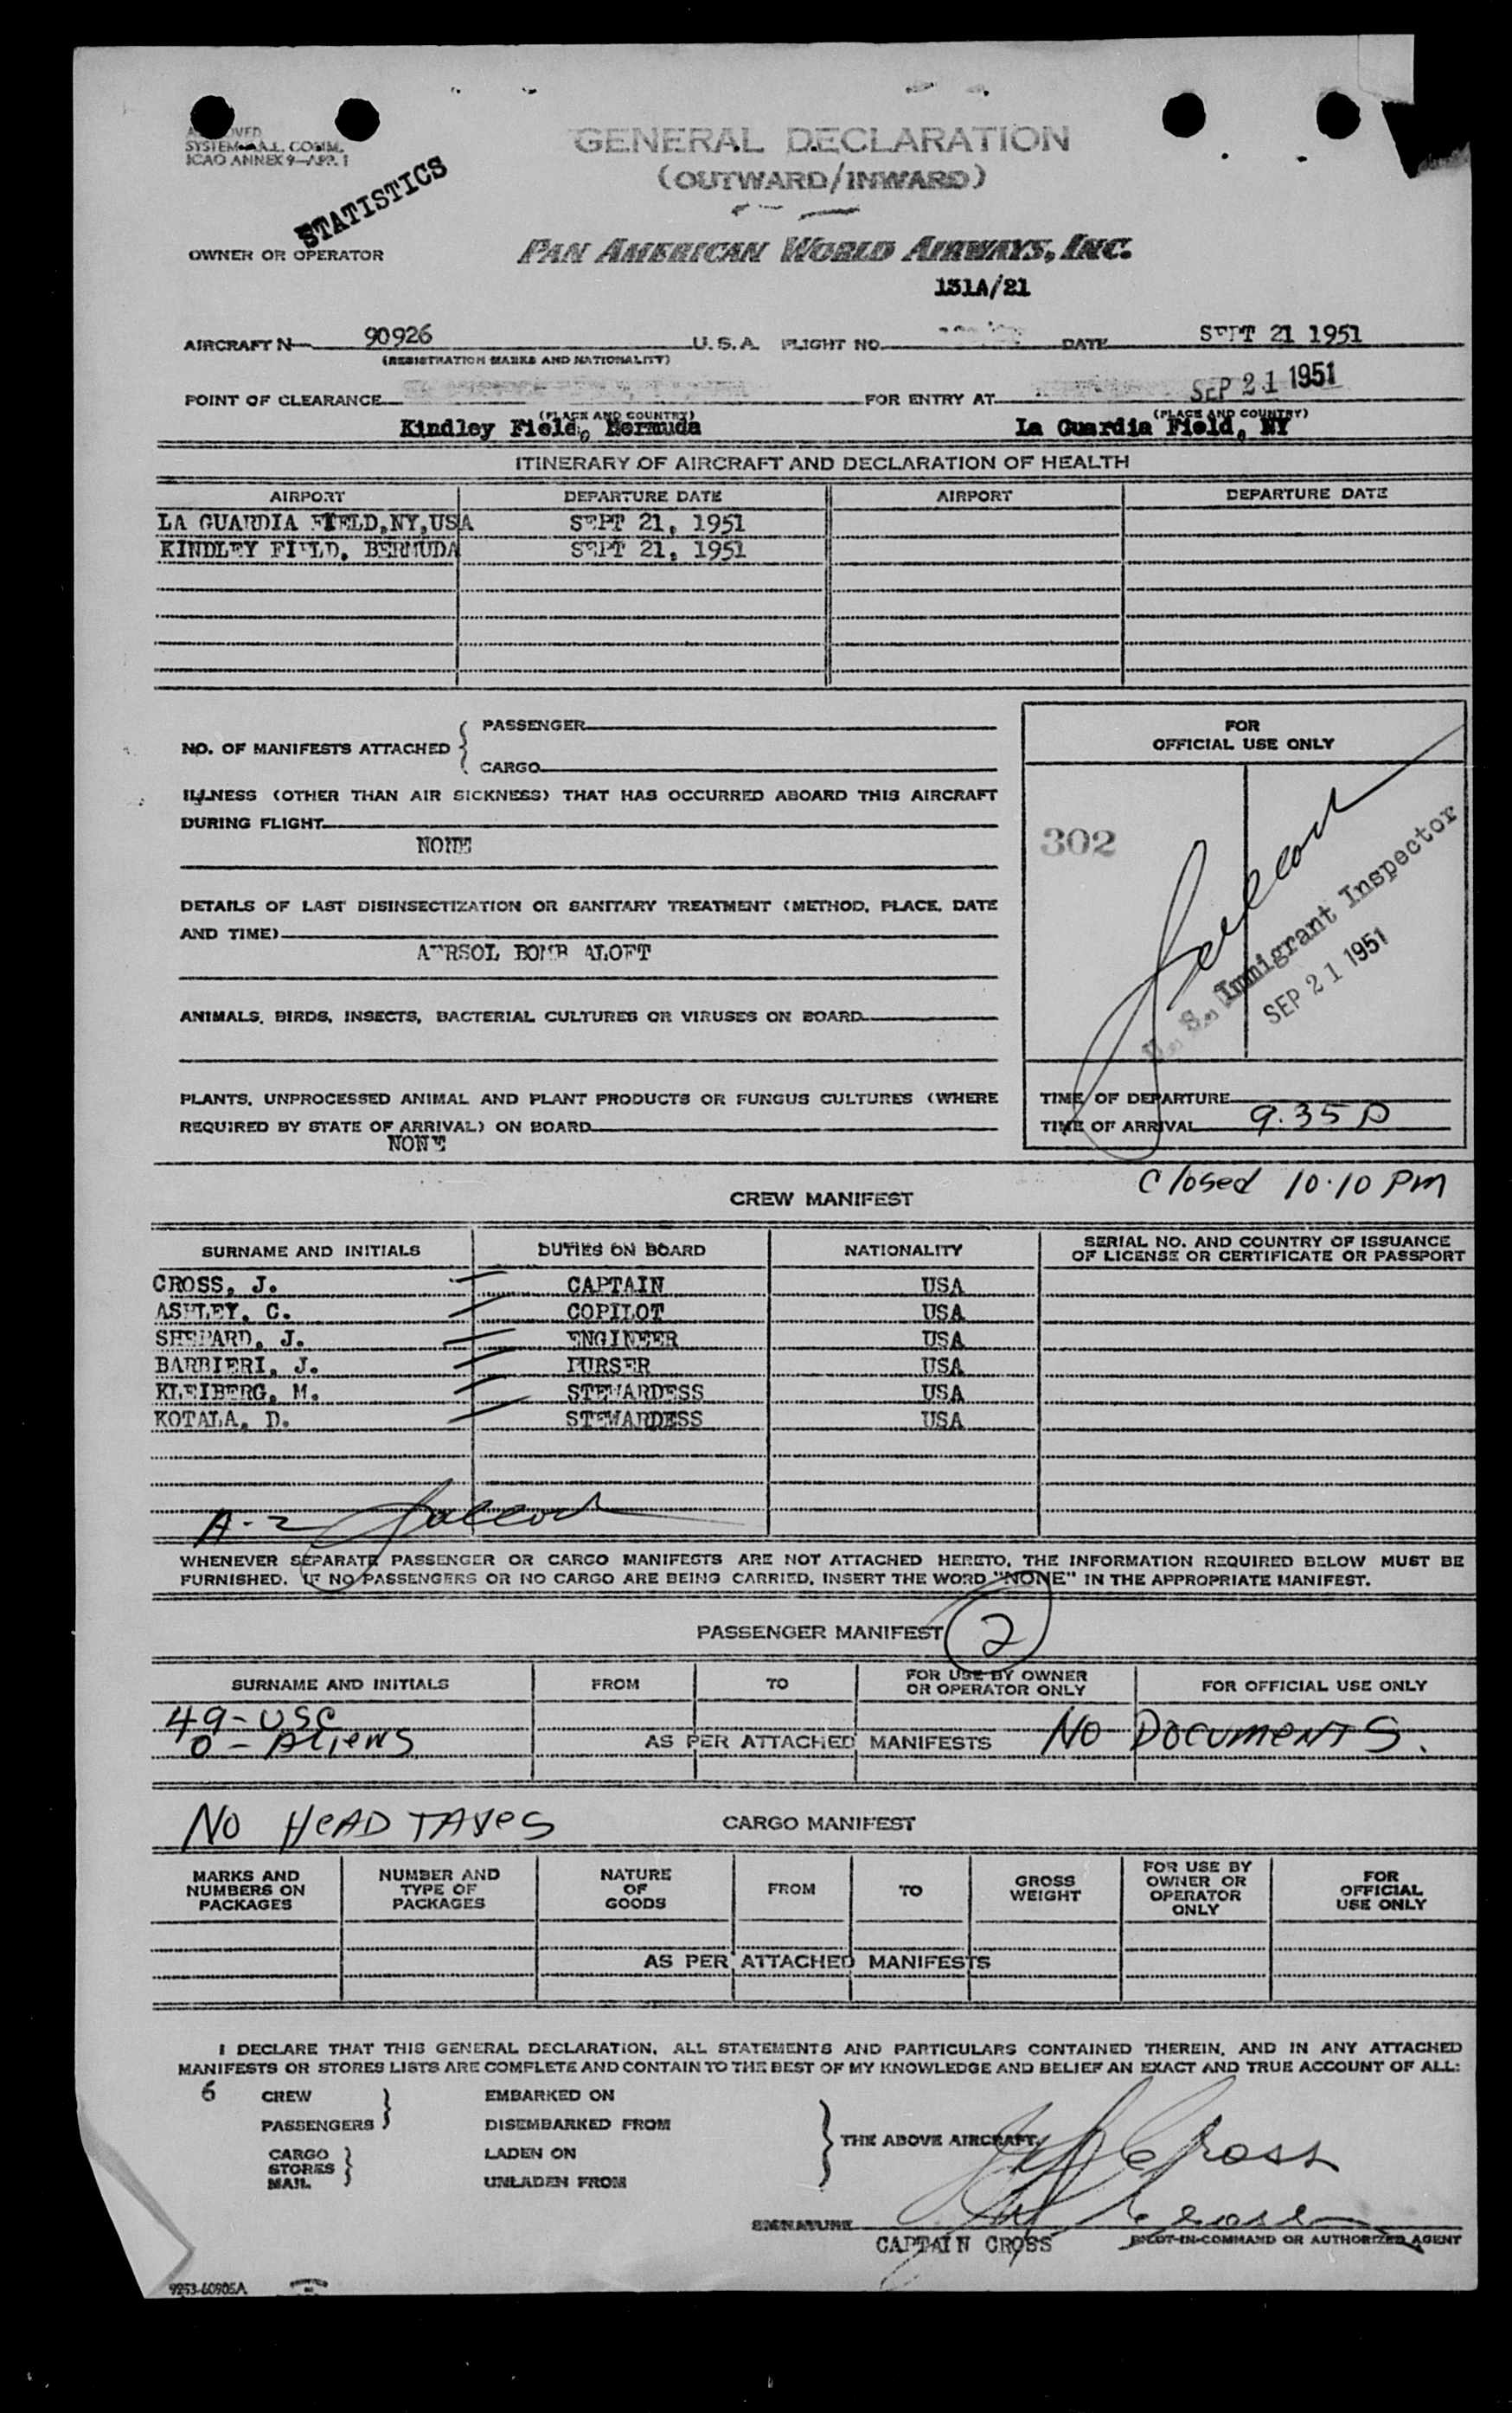 SYSTEM A.L. COMM.
ICAO ANNEX 9—APP. 1
STATISTICS
GENERAL DECLARATION
(OUTWARD/INWARD)
OWNER OR OPERATOR
PAN AMERICAN WORLD AIRWAYS, INC.
131A/21
AIRCRAFT N 90926 U. S. A. FLIGHT NO. DATE SEPT 21 1951
(REGISTRATION MARKS AND NATIONALITY)
POINT OF CLEARANCE FOR ENTRY AT SEP 21 1951
(PLACE AND COUNTRY) (PLACE AND COUNTRY)
Kindley Field, Bermuda La Guardia Field, NY
ITINERARY OF AIRCRAFT AND DECLARATION OF HEALTH
AIRPORT DEPARTURE DATE AIRPORT DEPARTURE DATE
LA GUARDIA FIELD,NY,USA SEPT 21, 1951
KINDLEY FIELD, BERMUDA SEPT 21, 1951
NO. OF MANIFESTS ATTACHED { PASSENGER
CARGO
ILLNESS (OTHER THAN AIR SICKNESS) THAT HAS OCCURRED ABOARD THIS AIRCRAFT
DURING FLIGHT
NONE
DETAILS OF LAST DISINSECTIZATION OR SANITARY TREATMENT (METHOD, PLACE, DATE
AND TIME)
AERSOL BOMB ALOFT
ANIMALS, BIRDS, INSECTS, BACTERIAL CULTURES OR VIRUSES ON BOARD
PLANTS, UNPROCESSED ANIMAL AND PLANT PRODUCTS OR FUNGUS CULTURES (WHERE
REQUIRED BY STATE OF ARRIVAL) ON BOARD
NONE
FOR
OFFICIAL USE ONLY
302
U. S. Immigrant Inspector
SEP 21 1951
TIME OF DEPARTURE
TIME OF ARRIVAL 9.35 P
Closed 10.10 PM
CREW MANIFEST
SURNAME AND INITIALS DUTIES ON BOARD NATIONALITY SERIAL NO. AND COUNTRY OF ISSUANCE
OF LICENSE OR CERTIFICATE OR PASSPORT
CROSS, J. CAPTAIN USA
ASHLEY, C. COPILOT USA
SHEPARD, J. ENGINEER USA
BARBIERI, J. PURSER USA
KLEIBERG, M. STEWARDESS USA
KOTALA, D. STEWARDESS USA
A-2
WHENEVER SEPARATE PASSENGER OR CARGO MANIFESTS ARE NOT ATTACHED HERETO, THE INFORMATION REQUIRED BELOW MUST BE
FURNISHED. IF NO PASSENGERS OR NO CARGO ARE BEING CARRIED, INSERT THE WORD "NONE" IN THE APPROPRIATE MANIFEST.
PASSENGER MANIFEST 2
SURNAME AND INITIALS FROM TO FOR USE BY OWNER
OR OPERATOR ONLY FOR OFFICIAL USE ONLY
49 - USC
0 - Aliens AS PER ATTACHED MANIFESTS NO DOCUMENTS.
NO HEAD TAXES CARGO MANIFEST
MARKS AND
NUMBERS ON
PACKAGES
NUMBER AND
TYPE OF
PACKAGES
NATURE
OF
GOODS
FROM
TO
GROSS
WEIGHT
FOR USE BY
OWNER OR
OPERATOR
ONLY
FOR
OFFICIAL
USE ONLY
AS PER ATTACHED MANIFESTS
I DECLARE THAT THIS GENERAL DECLARATION, ALL STATEMENTS AND PARTICULARS CONTAINED THEREIN, AND IN ANY ATTACHED
MANIFESTS OR STORES LISTS ARE COMPLETE AND CONTAIN TO THE BEST OF MY KNOWLEDGE AND BELIEF AN EXACT AND TRUE ACCOUNT OF ALL:
6 CREW EMBARKED ON
PASSENGERS DISEMBARKED FROM
THE ABOVE AIRCRAFT.
CARGO LADEN ON
STORES
MAIL UNLADEN FROM
SIGNATURE
CAPTAIN CROSS PILOT-IN-COMMAND OR AUTHORIZED AGENT
9253-60905A